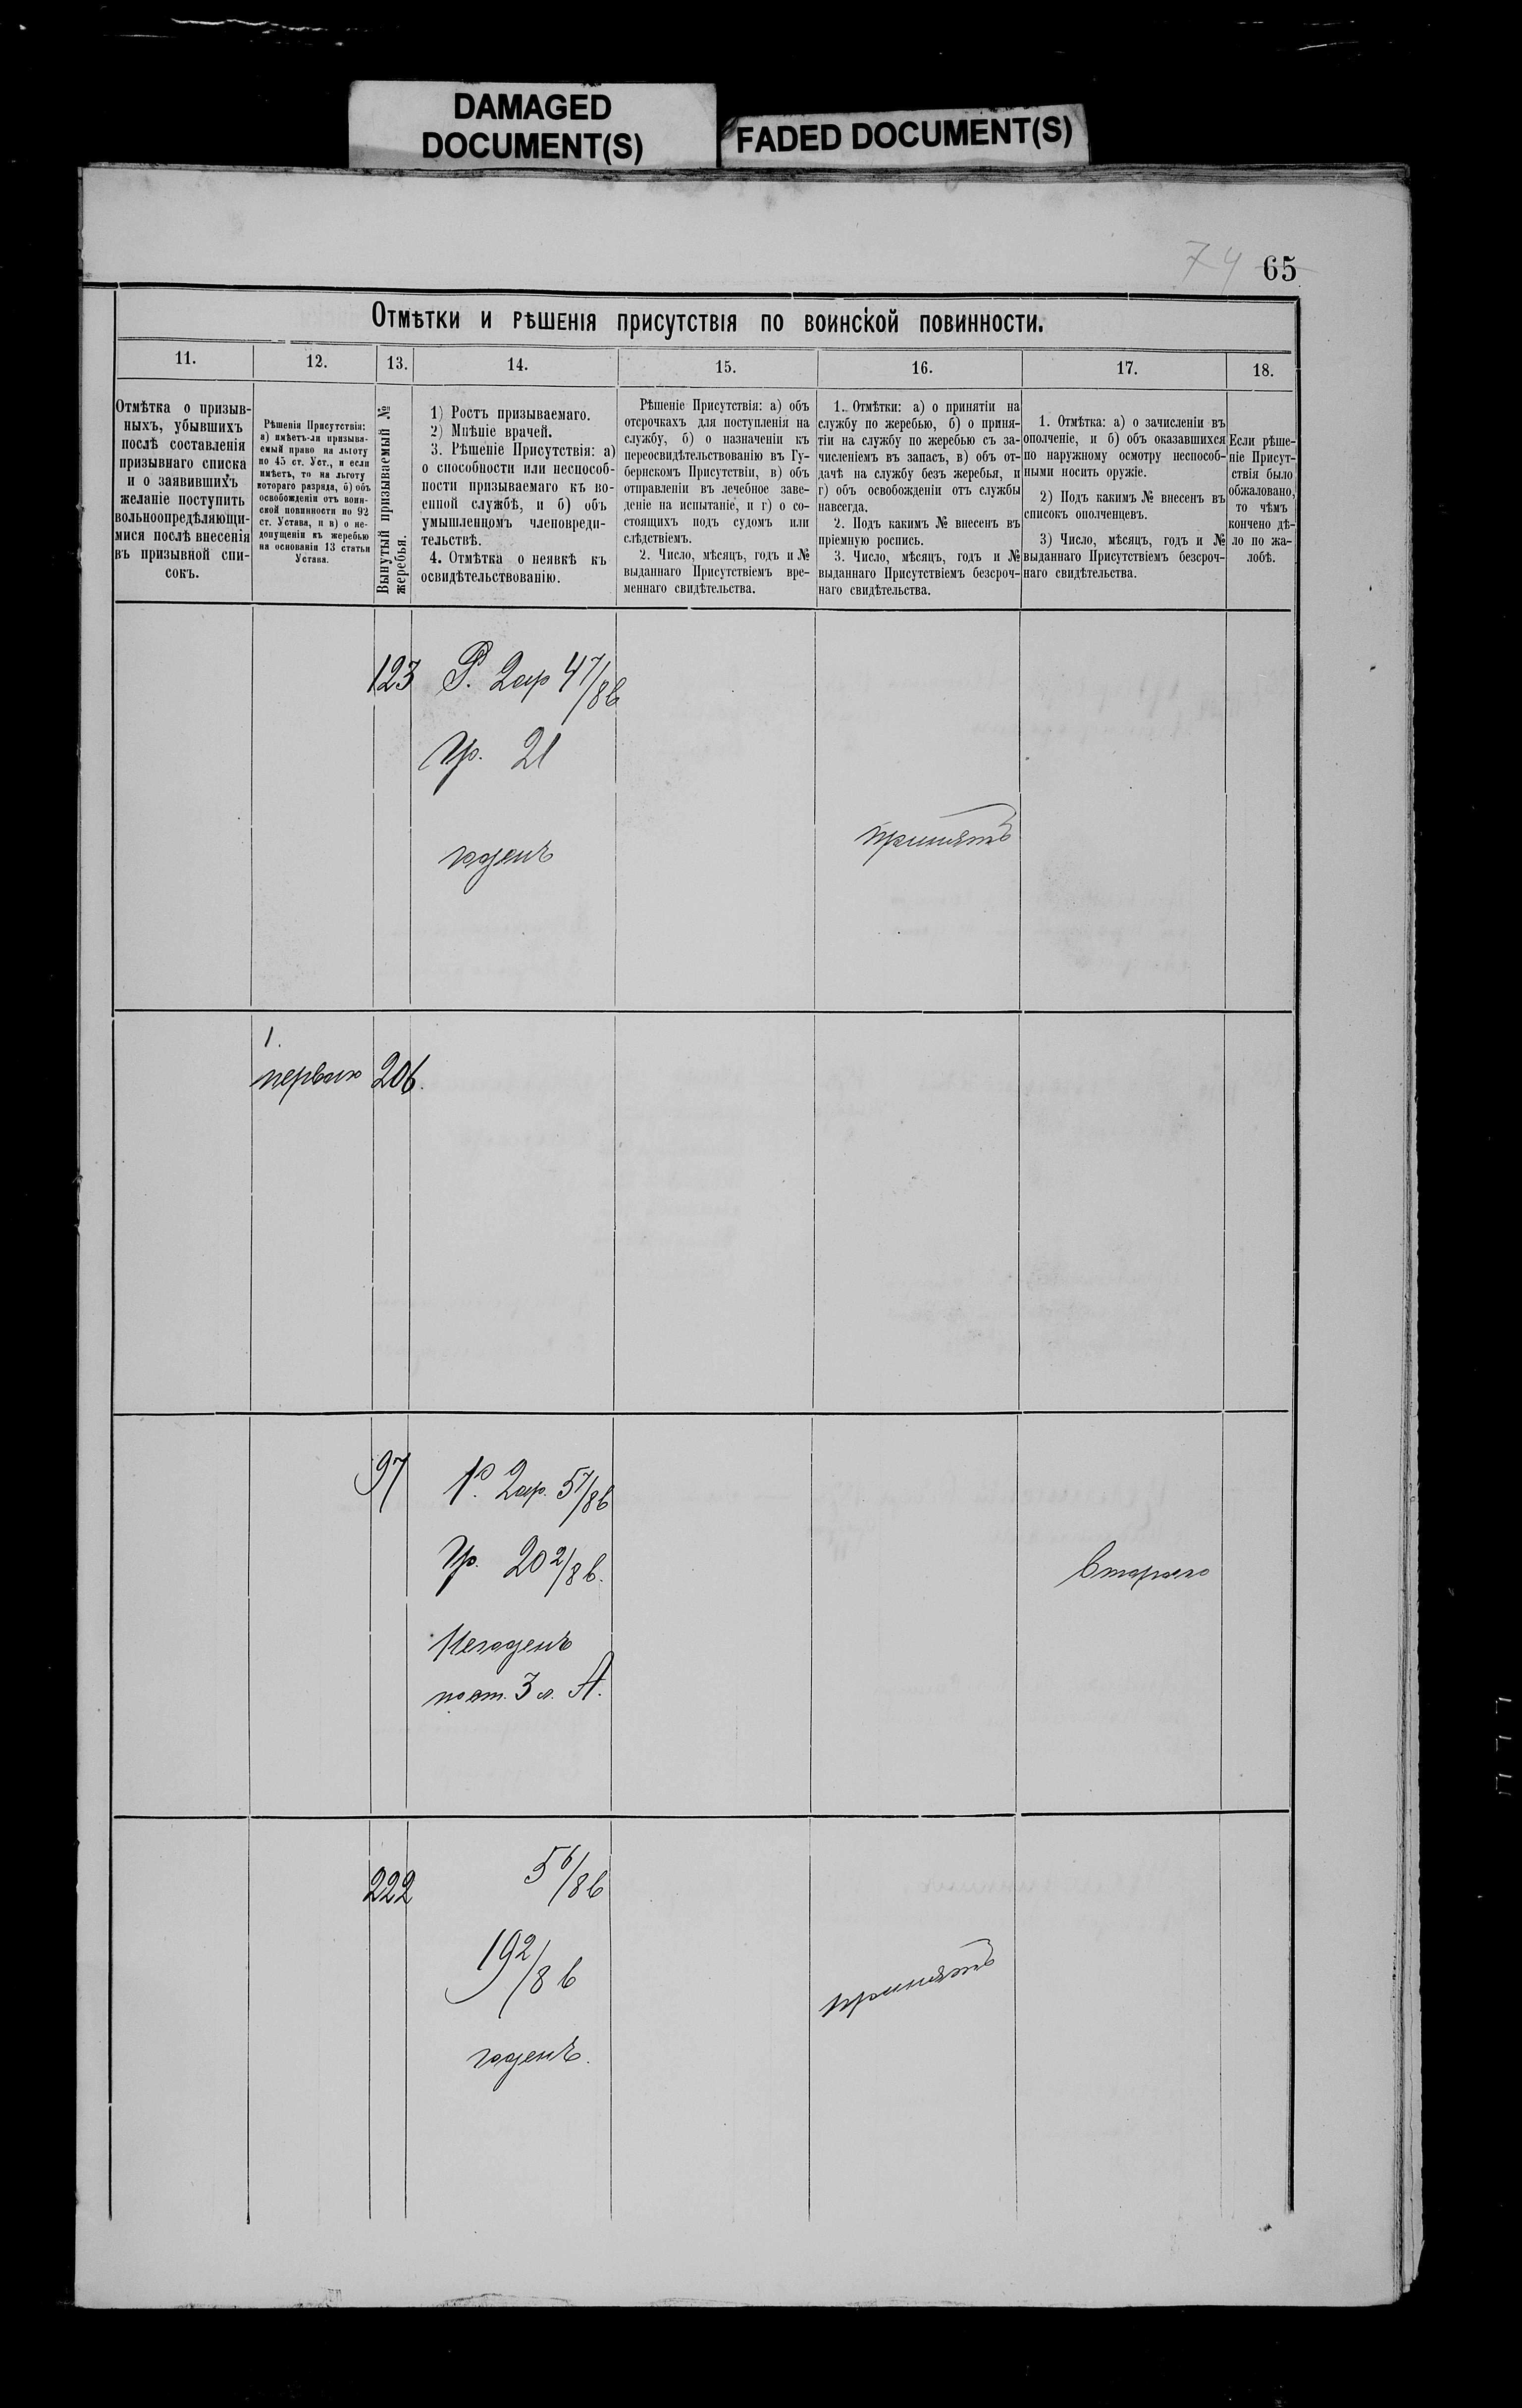 DAMAGED
DOCUMENT(S)
FADED DOCUMENT(S)
74 65
Отмѣтки и рѣшенія присутствія по воинской повинности.
11.
12.
13.
14.
15.
16.
17.
18.
Отмѣтка о призыв-
ныхъ, убывшихъ
послѣ составленія
призывнаго списка
и о заявившихъ
желаніе поступить
вольноопредѣляющи-
мися послѣ внесенія
въ призывной спи-
сокъ.
Рѣшенія Присутствія:
а) имѣетъ-ли призыва-
емый право на льготу
по 45 ст. Уст., и если
имѣетъ, то на льготу
котораго разряда, б) объ
освобожденіи отъ воин-
ской повинности по 92
ст. Устава, и в) о не-
допущеніи къ жеребью
на основаніи 13 статьи
Устава.
Вынутый призываемый №
жеребья.
1) Ростъ призываемаго.
2) Мнѣніе врачей.
3. Рѣшеніе Присутствія: а)
о способности или неспособ-
ности призываемаго къ во-
енной службѣ, и б) объ
умышленномъ членовреди-
тельствѣ.
4. Отмѣтка о неявкѣ къ
освидѣтельствованію.
Рѣшеніе Присутствія: а) объ
отсрочкахъ для поступленія на
службу, б) о назначеніи къ
переосвидѣтельствованію въ Гу-
бернскомъ Присутствіи, в) объ
отправленіи въ лечебное заве-
деніе на испытаніе, и г) о со-
стоящихъ подъ судомъ или
слѣдствіемъ.
2. Число, мѣсяцъ, годъ и №
выданнаго Присутствіемъ вре-
меннаго свидѣтельства.
1. Отмѣтки: а) о принятіи на
службу по жеребью, б) о приня-
тіи на службу по жеребью съ за-
численіемъ въ запасъ, в) объ от-
дачѣ на службу безъ жеребья, и
г) объ освобожденіи отъ службы
навсегда.
2. Подъ какимъ № внесенъ въ
пріемную роспись.
3. Число, мѣсяцъ, годъ и №
выданнаго Присутствіемъ безсроч-
наго свидѣтельства.
1. Отмѣтка: а) о зачисленіи въ
ополченіе, и б) объ оказавшихся
по наружному осмотру неспособ-
ными носить оружіе.
2) Подъ какимъ № внесенъ въ
списокъ ополченцевъ.
3) Число, мѣсяцъ, годъ и №
выданнаго Присутствіемъ безсроч-
наго свидѣтельства.
Если рѣше-
ніе Присут-
ствія было
обжаловано,
то чѣмъ
кончено дѣ-
ло по жа-
лобѣ.
123 Р. 2ар 4 7/8 в
Гр. 21
годенъ
принятъ
1.
перваго 206.
97 Р. 2ар. 5 7/8 в
Гр. 20 2/8 в.
Негоденъ
по ст. 3 л. А.
Втораго
222 5 6/8 в
19 2/8 в
годенъ.
принятъ